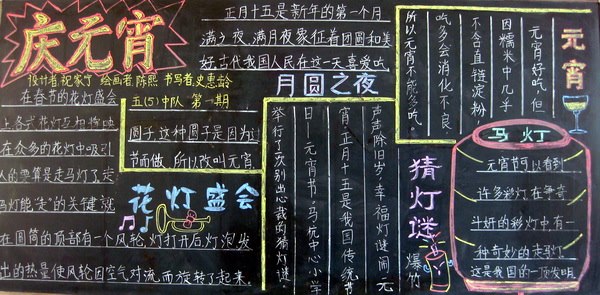 庆元宵
设计者:祝家宁 绘画者:陈熙 书写者:史惠龄
五(5)中队 第一期
正月十五是新年的第一个月
满之夜,满月夜象征着团圆和美
好。古代我国人民在这一天喜爱吃
圆子,这种圆子是因为过
节而做,所以改叫元宵
月圆之夜
元宵
元宵好吃,但
因糯米中几乎
不含直链淀粉
吃多会消化不良
所以元宵不能多吃。
花灯盛会
在春节的花灯盛会
上,各式花灯互相辉映
在众多的花灯中吸引
人的要算是走马灯了。走
马灯能“走”的关键就
在圆筒的顶部有一个风轮,灯打开后,灯泡发
出的热量使风轮因空气对流而旋转了起来。
猜灯谜
声声除旧岁,幸福灯谜闹元
宵,正月十五是我国传统节
日—元宵节,马坑中心小学
举行了一次别出心裁的猜灯谜
爆竹
马灯
元宵节可以看到
许多彩灯在争奇
斗妍的彩灯中有一
种奇妙的走马灯
这是我国的一项发明